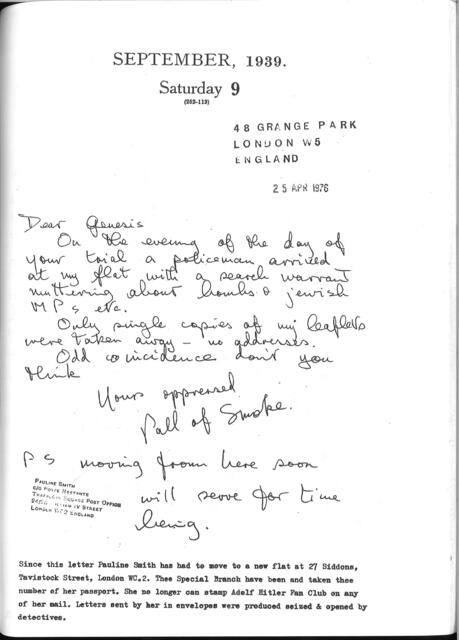 SEPTEMBER, 1939.
Saturday 9
(252-113)
48 GRANGE PARK
LONDON W5
ENGLAND
25 APR 1976
Dear Genesis
On the evening of the day of
your trial a policeman arrived
at my flat with a search warrant
muttering about bombs & jewish
MPs etc.
Only single copies of my leaflets
were taken away – no addresses.
Odd coincidence don't you
think
Yours oppressed
Pall of Smoke.
PS moving from here soon
PAULINE SMITH
C/O POSTE RESTANTE
TRAFALGAR SQUARE POST OFFICE
WILLIAM IV STREET
LONDON WC2 ENGLAND
will serve for time
being.
Since this letter Pauline Smith has had to move to a new flat at 27 Siddons,
Tavistock Street, London WC.2. Thee Special Branch have been and taken thee
number of her passport. She no longer can stamp Adolf Hitler Fan Club on any
of her mail. Letters sent by her in envelopes were produced seized & opened by
detectives.